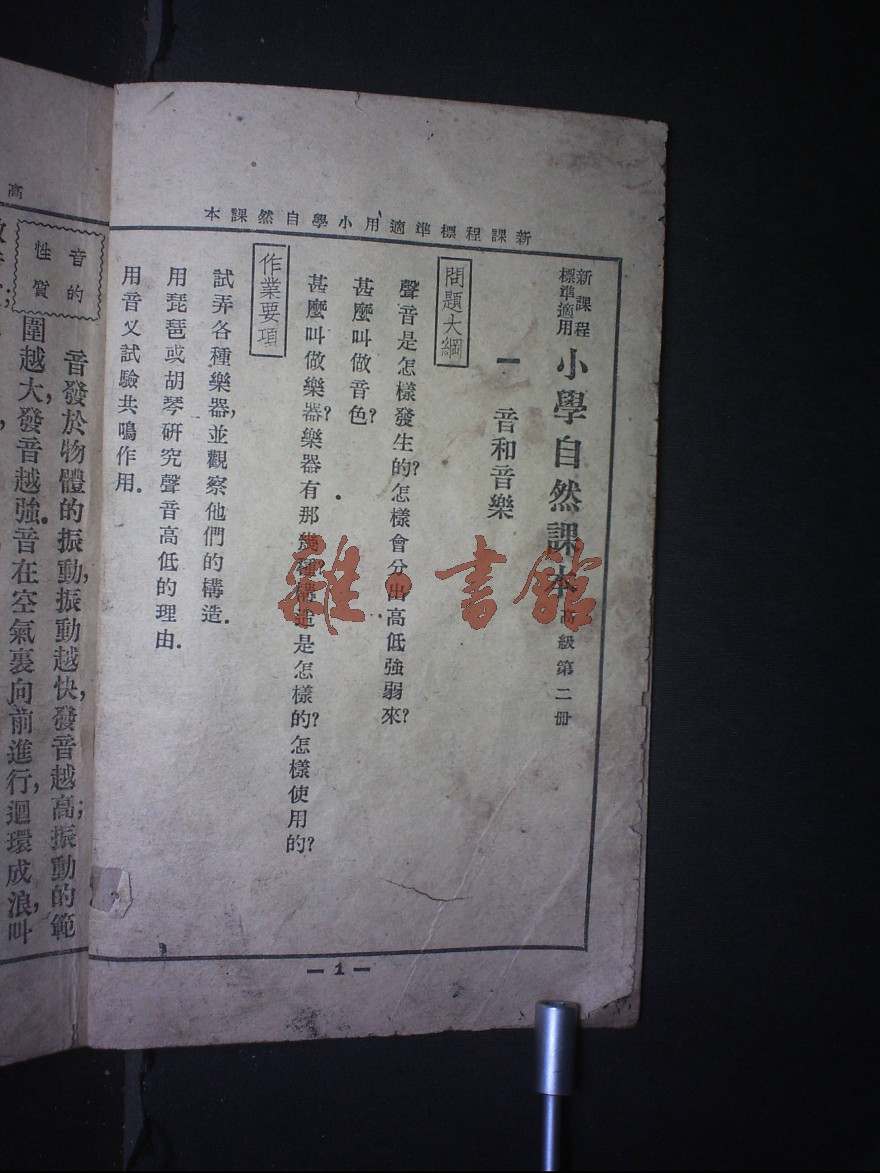 新課程標準適用小學自然課本
新課程標準適用
小學自然課本 高級第二册
一 音和音樂
問題大綱
聲音是怎樣發生的?怎樣會分出高低強弱來?
甚麼叫做音色?
甚麼叫做樂器?樂器有那幾種?構造是怎樣的?怎樣使用的?
作業要項
試弄各種樂器,並觀察他們的構造.
用琵琶或胡琴研究聲音高低的理由.
用音叉試驗共鳴作用.
— 1 —
高
音的性質
音發於物體的振動,振動越快,發音越高;振動的範
圍越大,發音越強.音在空氣裏向前進行,迴環成浪,叫
雜·書館